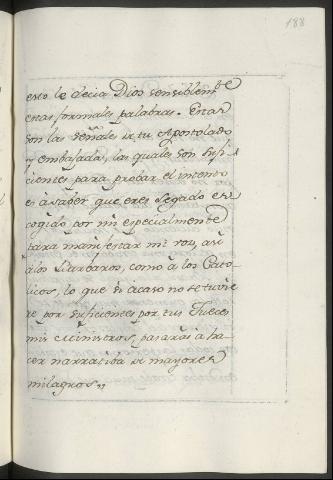 188
esto le decia Dios sensiblem.te
estas formales palabras. Estas
son las señales de tu Apostolado
y embajada, las quales son sufi-
cientes para probar el intento
es a saber que eres legado es-
cogido por mi especialmente
para manifestar mi voz, asi
a los Barbaros, como a los Cato-
licos, lo que si acaso no se tuvie-
re por suficientes por tus Jueces
mis ministros, pasaras a ha-
cer narrativa de mayores
milagros,,